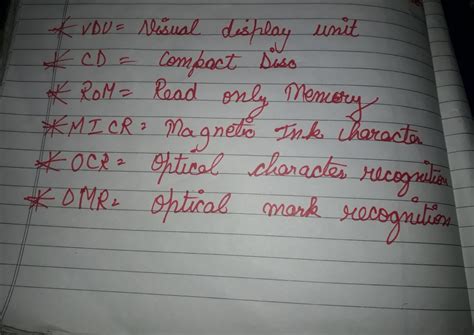 * VDU = Visual display unit
* CD = Compact Disc
* ROM = Read only Memory
* MICR = Magnetic Ink character
* OCR = Optical character recognition
* OMR = Optical mark recognition